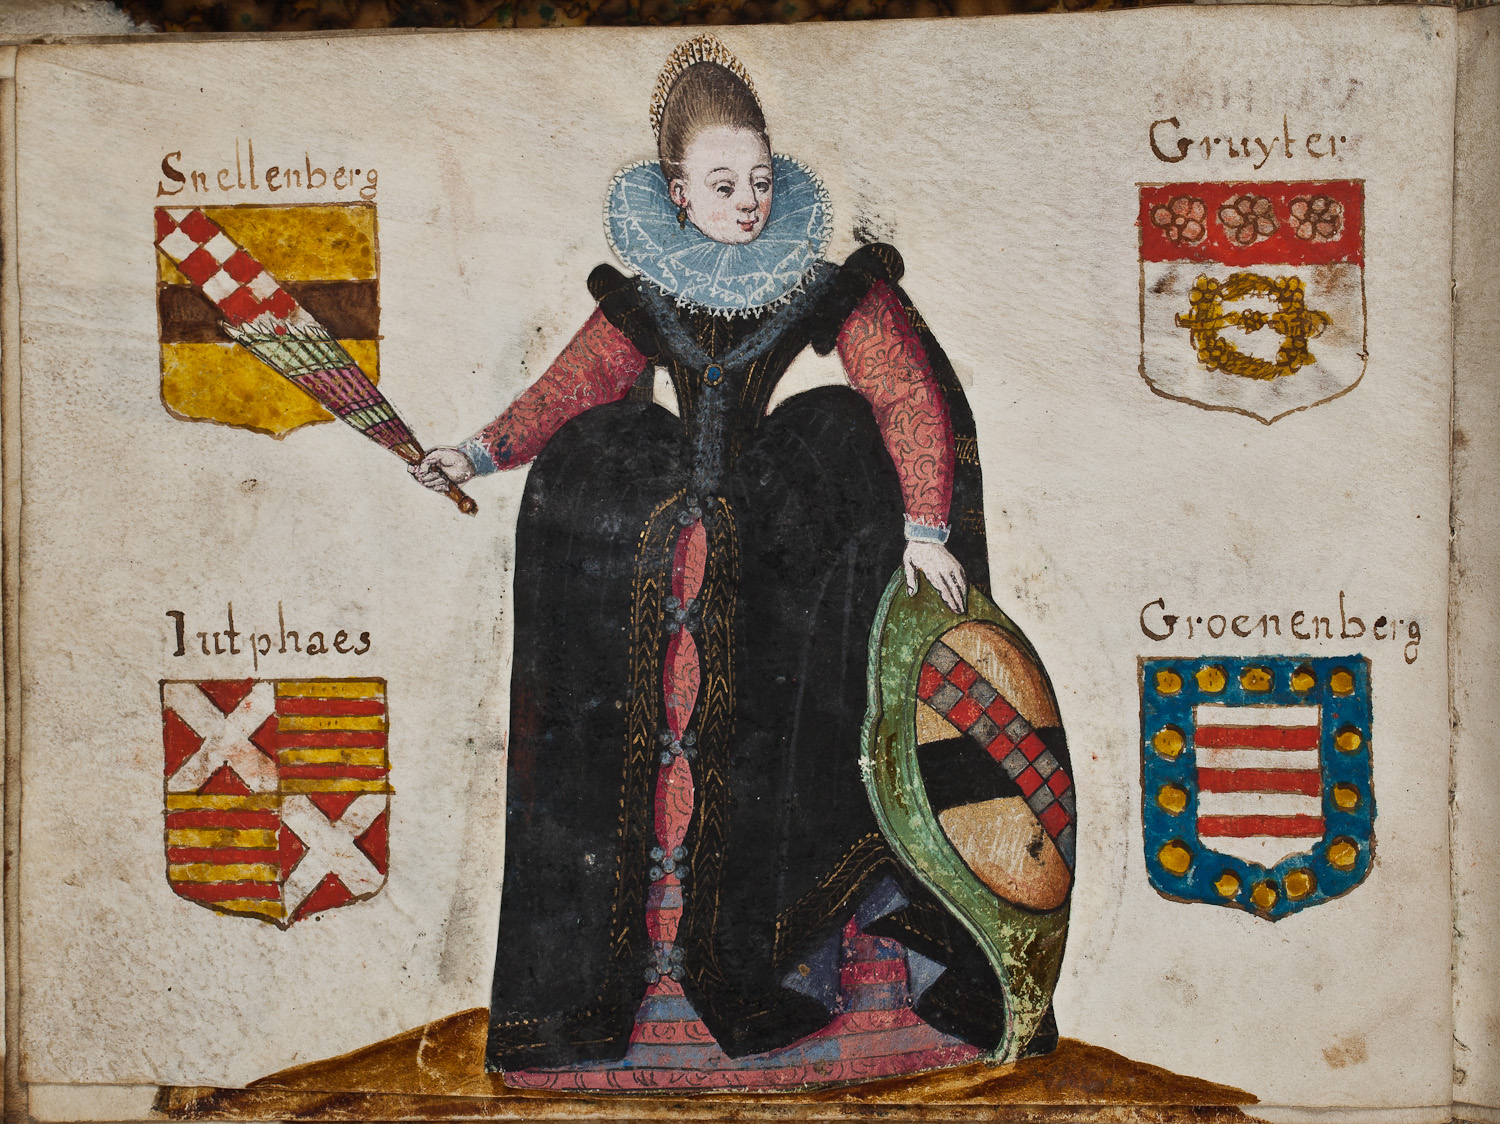 Snellenberg
Gruyter
Iutphaes
Groenenberg